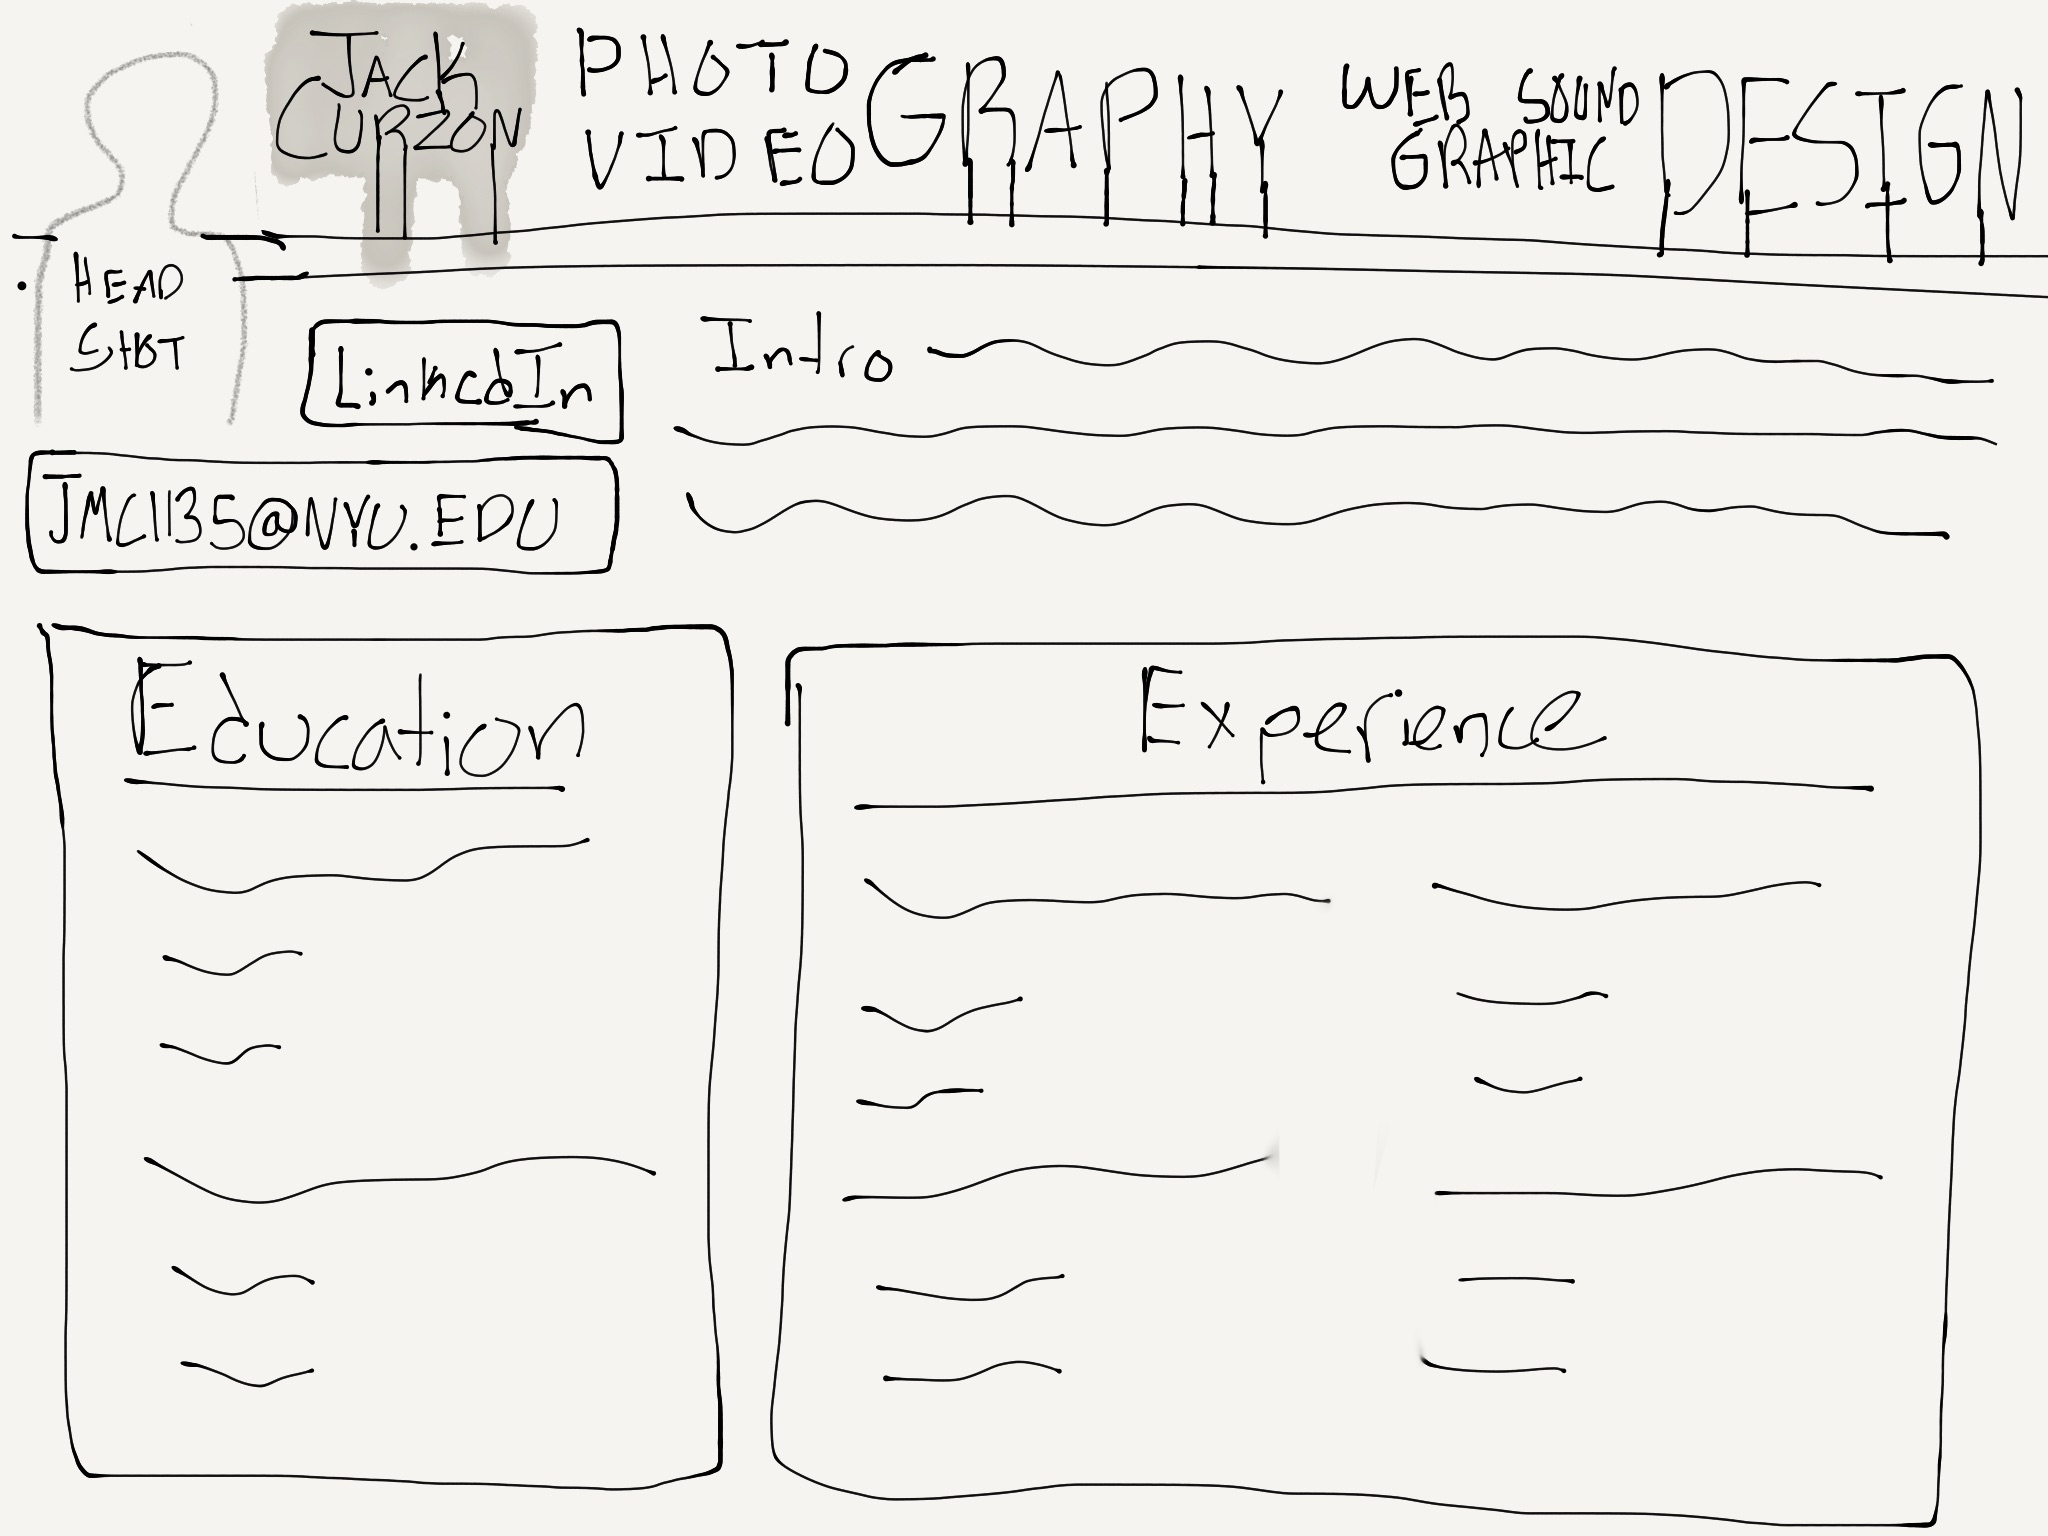 JACK
CURZON
PHOTO
VIDEO
GRAPHY
WEB SOUND
GRAPHIC
DESIGN
HEAD
SHOT
LinkedIn
Intro
JMC1135@NYU.EDU
Education
Experience